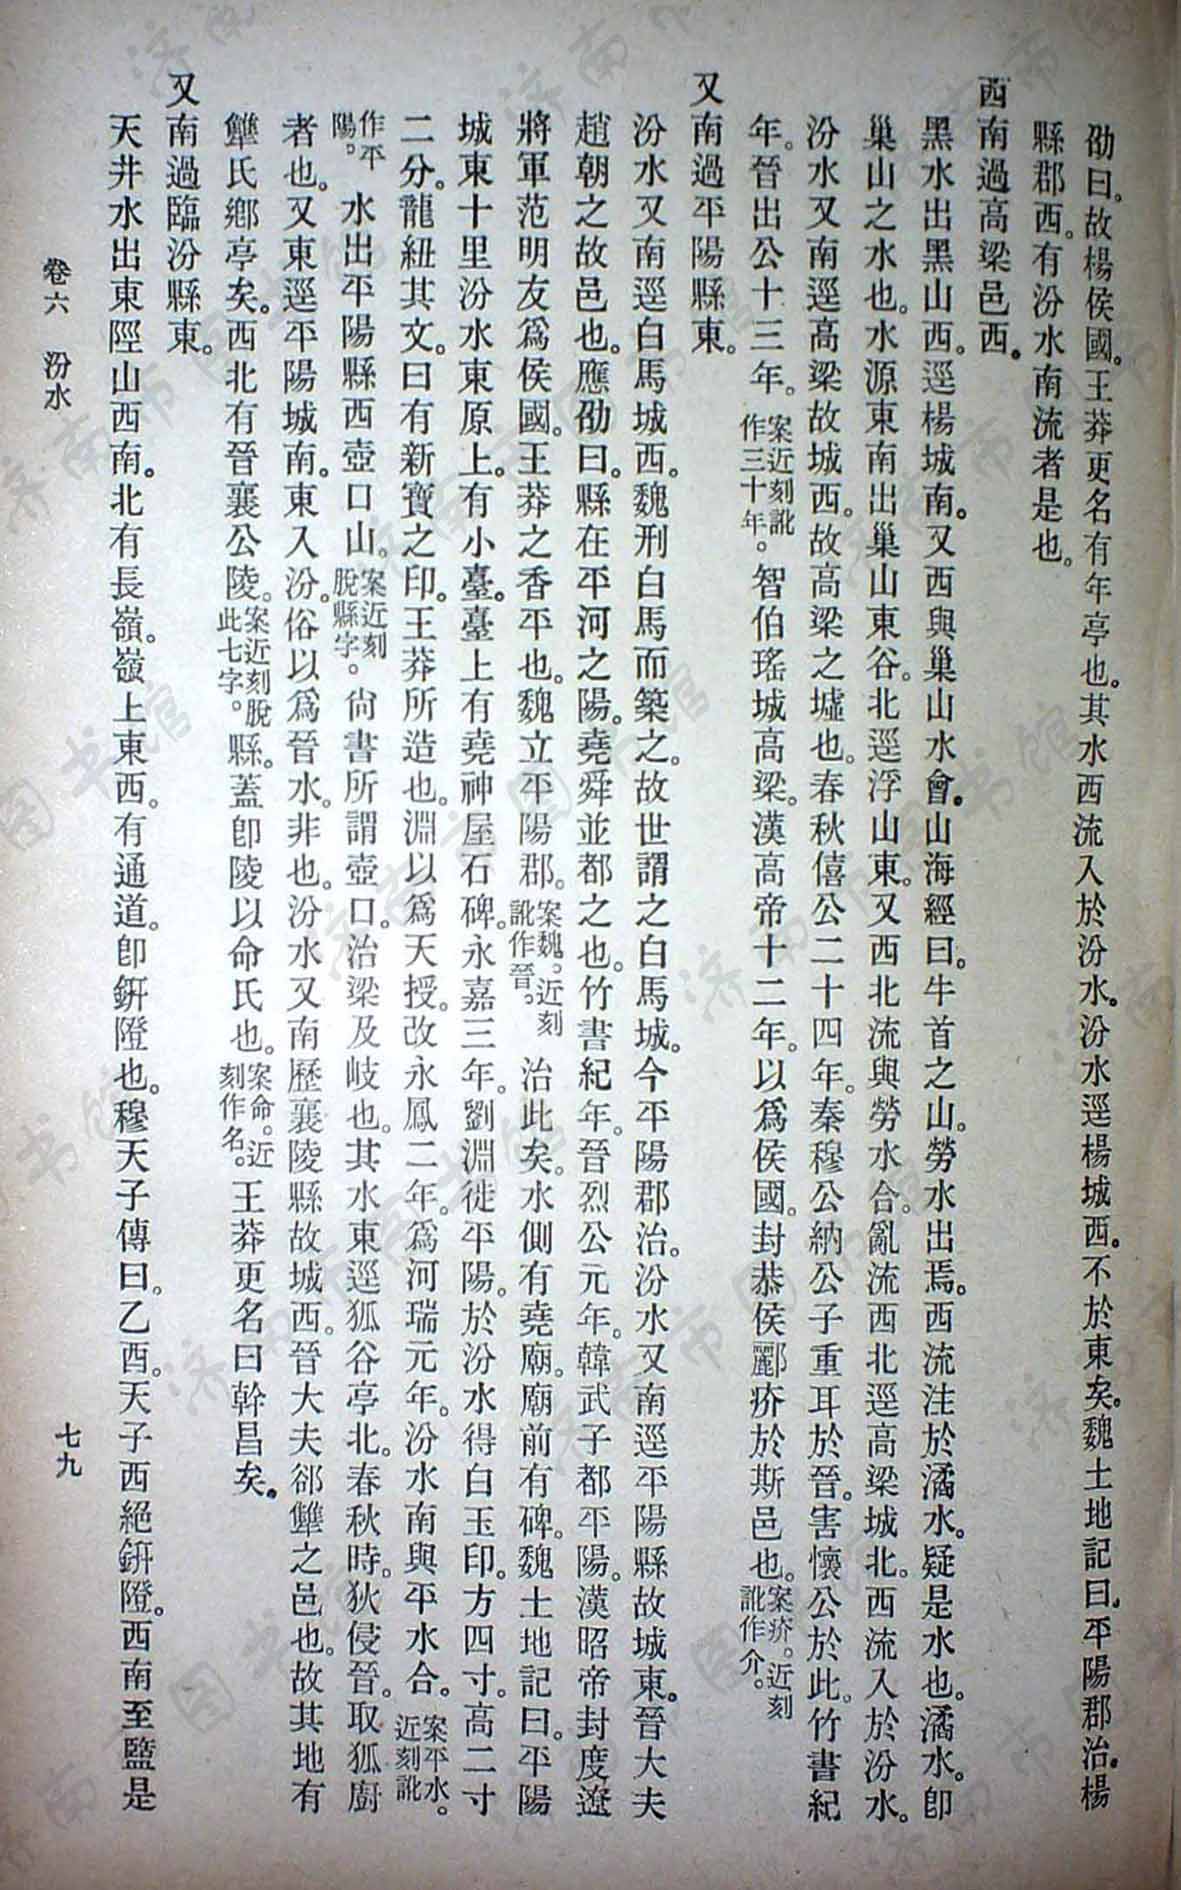 劭曰。故楊侯國。王莽更名有年亭也。其水西流入於汾水。汾水逕楊城西。不於東矣。魏土地記曰。平陽郡治。楊
縣郡西。有汾水南流者是也。
西南過高梁邑西。
黑水出黑山西。逕楊城南。又西與巢山水會。山海經曰。牛首之山。勞水出焉。西流注於潏水。疑是水也。潏水。卽
巢山之水也。水源東南出巢山東谷。北逕浮山東。又西北流與勞水合。亂流西北逕高梁城北。西流入於汾水。
汾水又南逕高梁故城西。故高梁之墟也。春秋僖公二十四年。秦穆公納公子重耳於晉。害懷公於此。竹書紀
年。晉出公十三年。案近刻訛作三十年。智伯瑤城高梁。漢高帝十二年。以爲侯國。封恭侯酈疥於斯邑也。案疥。近刻訛作介。
又南過平陽縣東。
汾水又南逕白馬城西。魏刑白馬而築之。故世謂之白馬城。今平陽郡治。汾水又南逕平陽縣故城東。晉大夫
趙朝之故邑也。應劭曰。縣在平河之陽。堯舜並都之也。竹書紀年。晉烈公元年。韓武子都平陽。漢昭帝封度遼
將軍范明友爲侯國。王莽之香平也。魏立平陽郡。案魏。近刻訛作晉。治此矣。水側有堯廟。廟前有碑。魏土地記曰。平陽
城東十里汾水東原上。有小臺。臺上有堯神屋石碑。永嘉三年。劉淵徙平陽。於汾水得白玉印。方四寸。高二寸
二分。龍紐其文。曰有新寶之印。王莽所造也。淵以爲天授。改永鳳二年。爲河瑞元年。汾水南與平水合。案平水。近刻訛
作平陽。水出平陽縣西壺口山。案近刻脫縣字。尙書所謂壺口。治梁及岐也。其水東逕狐谷亭北。春秋時。狄侵晉。取狐廚
者也。又東逕平陽城南。東入汾。俗以爲晉水。非也。汾水又南歷襄陵縣故城西。晉大夫郤犨之邑也。故其地有
犨氏鄉亭矣。西北有晉襄公陵。案近刻脫此七字。縣。蓋卽陵以命氏也。案命。近刻作名。王莽更名曰幹昌矣。
又南過臨汾縣東。
天井水出東陘山西南。北有長嶺。嶺上東西。有通道。卽鈃隥也。穆天子傳曰。乙酉。天子西絕鈃隥。西南至盬是
卷六 汾水
七九